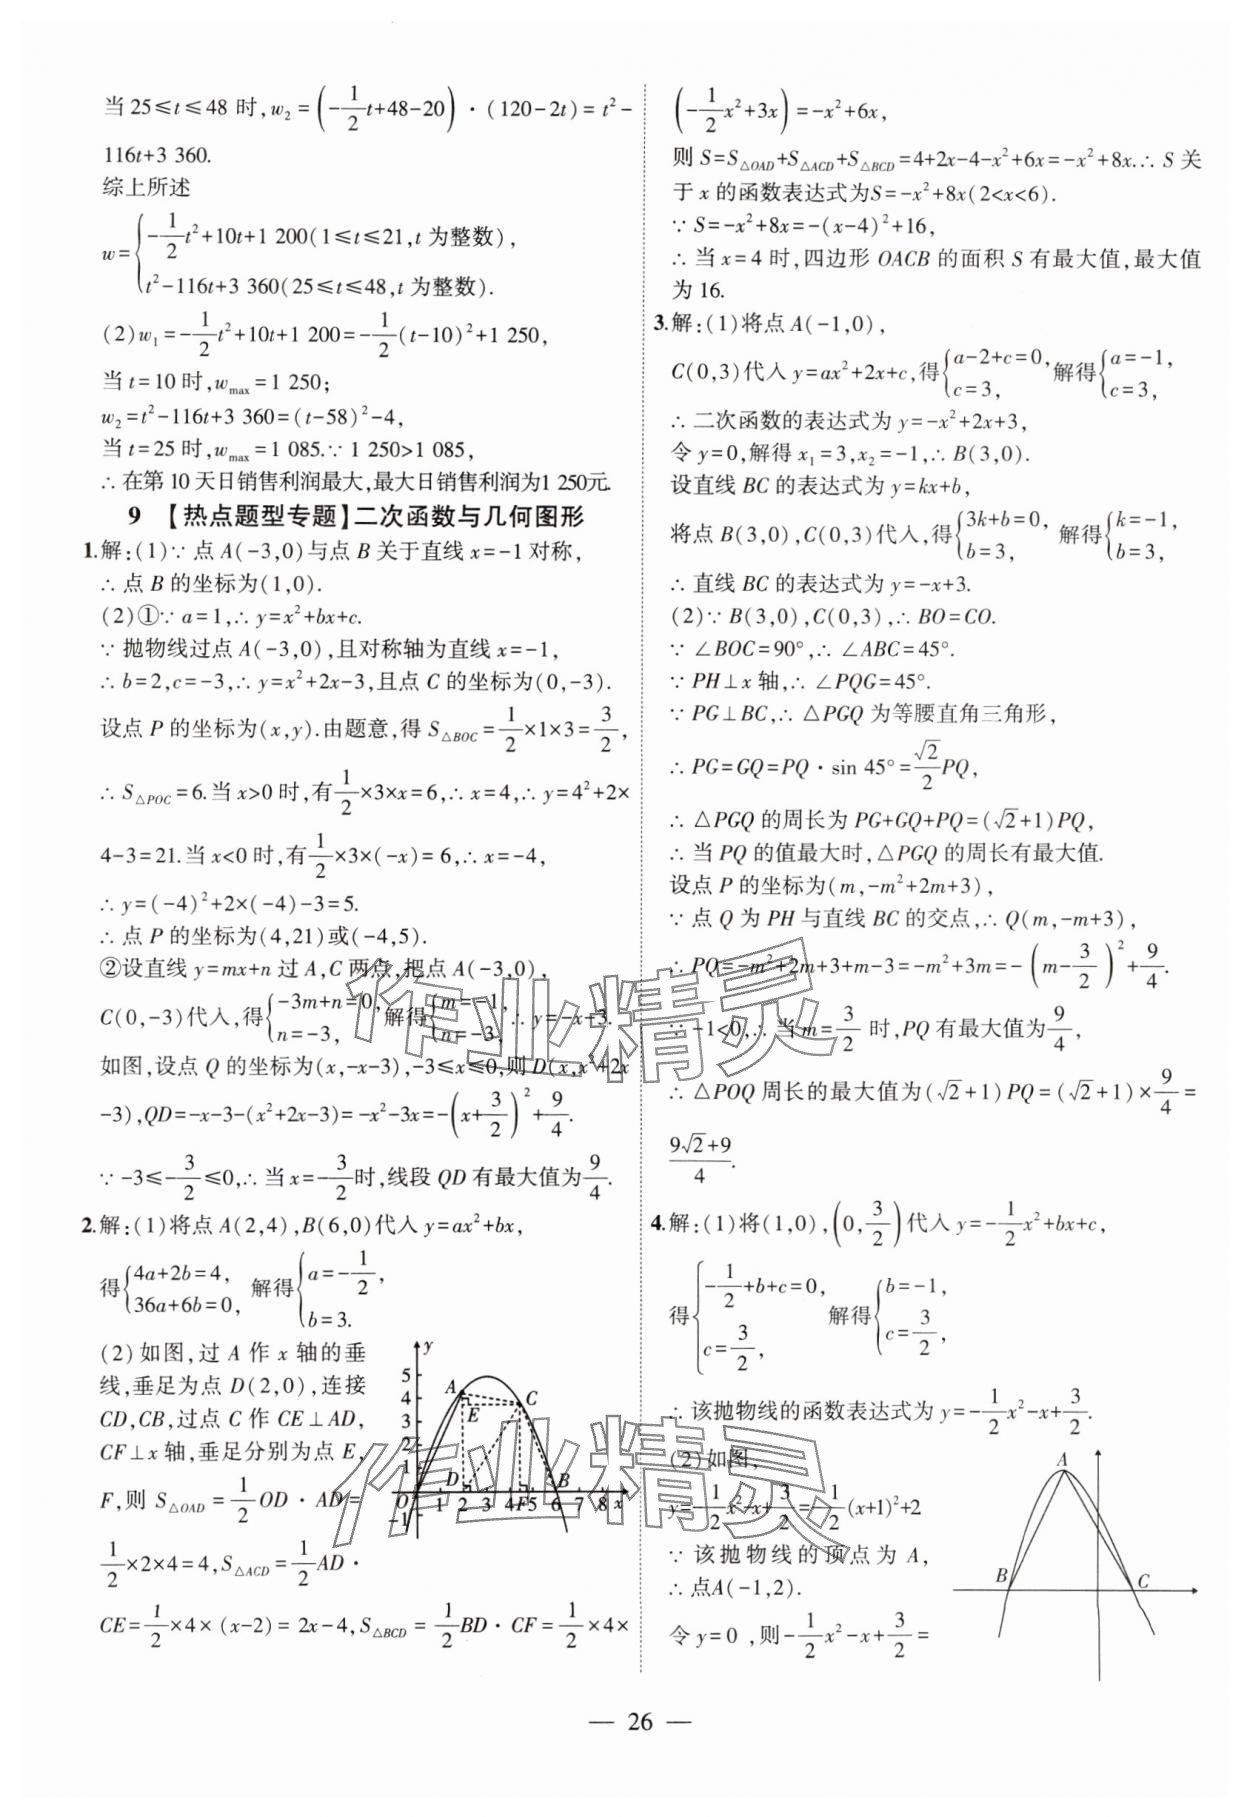 当 25≤t≤48 时,w₂=(-1/2t+48-20)·(120-2t)=t²-
116t+3 360.
综上所述
w={-1/2t²+10t+1 200(1≤t≤21,t 为整数),
t²-116t+3 360(25≤t≤48,t 为整数).
(2)w₁=-1/2t²+10t+1 200=-1/2(t-10)²+1 250,
当 t=10 时,wmax=1 250;
w₂=t²-116t+3 360=(t-58)²-4,
当 t=25 时,wmax=1 085.∵1 250>1 085,
∴在第 10 天日销售利润最大,最大日销售利润为1 250元.
9 【热点题型专题】二次函数与几何图形
1.解:(1)∵点 A(-3,0)与点 B 关于直线 x=-1 对称,
∴点 B 的坐标为(1,0).
(2)①∵a=1,∴y=x²+bx+c.
∵抛物线过点 A(-3,0),且对称轴为直线 x=-1,
∴b=2,c=-3,∴y=x²+2x-3,且点 C 的坐标为(0,-3).
设点 P 的坐标为(x,y).由题意,得 S△BOC=1/2×1×3=3/2,
∴S△POC=6.当 x>0 时,有1/2×3×x=6,∴x=4,∴y=4²+2×
4-3=21.当 x<0 时,有1/2×3×(-x)=6,∴x=-4,
∴y=(-4)²+2×(-4)-3=5.
∴点 P 的坐标为(4,21)或(-4,5).
②设直线 y=mx+n 过 A,C 两点,把点 A(-3,0),
C(0,-3)代入,得{-3m+n=0, n=-3, 解得{m=-1, n=-3, ∴y=-x-3.
如图,设点 Q 的坐标为(x,-x-3),-3≤x≤0,则 D(x,x²+2x
-3),QD=-x-3-(x²+2x-3)=-x²-3x=-(x+3/2)²+9/4.
∵-3≤-3/2≤0,∴当 x=-3/2时,线段 QD 有最大值为9/4.
2.解:(1)将点 A(2,4),B(6,0)代入 y=ax²+bx,
得{4a+2b=4, 36a+6b=0, 解得{a=-1/2, b=3.
(2)如图,过 A 作 x 轴的垂
线,垂足为点 D(2,0),连接
CD,CB,过点 C 作 CE⊥AD,
CF⊥x 轴,垂足分别为点 E,
F,则 S△OAD=1/2OD·AD=
1/2×2×4=4,S△ACD=1/2AD·
CE=1/2×4×(x-2)=2x-4,S△BCD=1/2BD·CF=1/2×4×
y
5
4
3
2
1
-1
A
C
E
D
B
O 1 2 3 4 F 5 6 7 8 x
(-1/2x²+3x)=-x²+6x,
则 S=S△OAD+S△ACD+S△BCD=4+2x-4-x²+6x=-x²+8x.∴S 关
于 x 的函数表达式为S=-x²+8x(2<x<6).
∵S=-x²+8x=-(x-4)²+16,
∴当 x=4 时,四边形 OACB 的面积 S 有最大值,最大值
为 16.
3.解:(1)将点 A(-1,0),
C(0,3)代入 y=ax²+2x+c,得{a-2+c=0, c=3, 解得{a=-1, c=3,
∴二次函数的表达式为 y=-x²+2x+3,
令 y=0,解得 x₁=3,x₂=-1,∴B(3,0).
设直线 BC 的表达式为 y=kx+b,
将点 B(3,0),C(0,3)代入,得{3k+b=0, b=3, 解得{k=-1, b=3,
∴直线 BC 的表达式为 y=-x+3.
(2)∵B(3,0),C(0,3),∴BO=CO.
∵∠BOC=90°,∴∠ABC=45°.
∵PH⊥x 轴,∴∠PQG=45°.
∵PG⊥BC,∴△PGQ 为等腰直角三角形,
∴PG=GQ=PQ·sin 45°=√2/2PQ,
∴△PGQ 的周长为 PG+GQ+PQ=(√2+1)PQ,
∴当 PQ 的值最大时,△PGQ 的周长有最大值.
设点 P 的坐标为(m,-m²+2m+3),
∵点 Q 为 PH 与直线 BC 的交点,∴Q(m,-m+3),
∴PQ=-m²+2m+3+m-3=-m²+3m=-(m-3/2)²+9/4.
∵-1<0,∴当 m=3/2 时,PQ 有最大值为9/4,
∴△POQ 周长的最大值为(√2+1)PQ=(√2+1)×9/4=
(9√2+9)/4.
4.解:(1)将(1,0),(0,3/2)代入 y=-1/2x²+bx+c,
得{-1/2+b+c=0, c=3/2, 解得{b=-1, c=3/2,
∴该抛物线的函数表达式为 y=-1/2x²-x+3/2.
(2)如图,
y=-1/2x²-x+3/2=-1/2(x+1)²+2
∵该抛物线的顶点为 A,
∴点A(-1,2).
令 y=0 ,则-1/2x²-x+3/2=
A
B
C
作业精灵
作业精灵
— 26 —